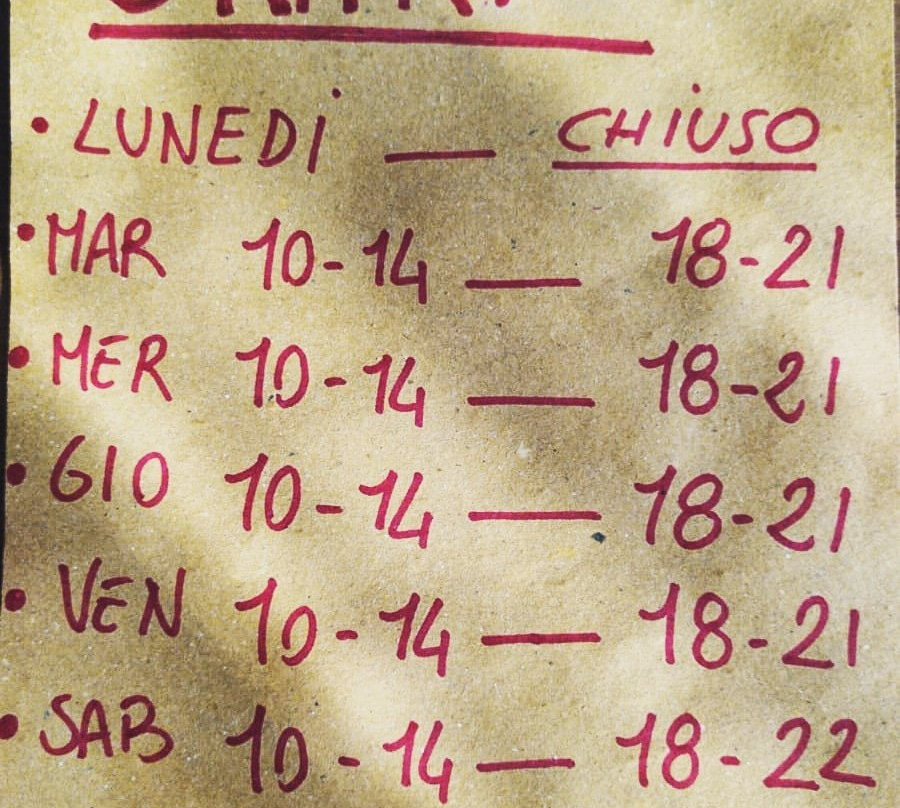 • LUNEDI — CHIUSO
• MAR 10-14 — 18-21
• MER 10-14 — 18-21
• GIO 10-14 — 18-21
• VEN 10-14 — 18-21
• SAB 10-14 — 18-22